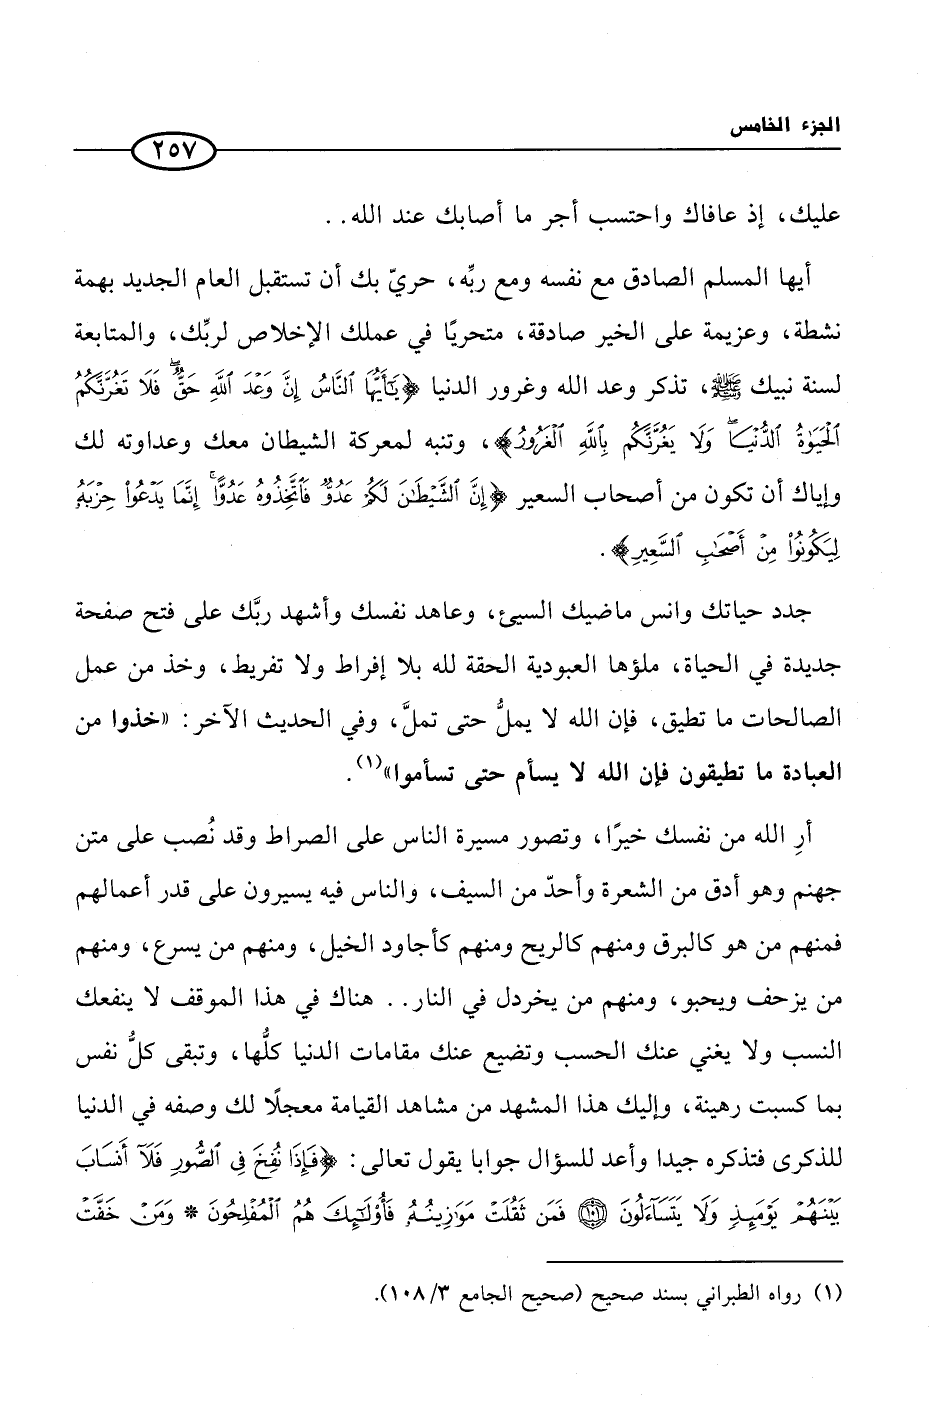 الجزء الخامس
٢٥٧
عليك، إذ عافاك واحتسب أجر ما أصابك عند الله..
أيها المسلم الصادق مع نفسه ومع ربِّه، حريّ بك أن تستقبل العام الجديد بهمة
نشطة، وعزيمة على الخير صادقة، متحريًا في عملك الإخلاص لربِّك، والمتابعة
لسنة نبيك ﷺ، تذكر وعد الله وغرور الدنيا ﴿يَٰٓأَيُّهَا ٱلنَّاسُ إِنَّ وَعْدَ ٱللَّهِ حَقٌّ ۖ فَلَا تَغُرَّنَّكُمُ
ٱلْحَيَوٰةُ ٱلدُّنْيَا ۖ وَلَا يَغُرَّنَّكُم بِٱللَّهِ ٱلْغَرُورُ﴾، وتنبه لمعركة الشيطان معك وعداوته لك
وإياك أن تكون من أصحاب السعير ﴿إِنَّ ٱلشَّيْطَٰنَ لَكُمْ عَدُوٌّ فَٱتَّخِذُوهُ عَدُوًّا ۚ إِنَّمَا يَدْعُوا۟ حِزْبَهُۥ
لِيَكُونُوا۟ مِنْ أَصْحَٰبِ ٱلسَّعِيرِ﴾.
جدد حياتك وانس ماضيك السيئ، وعاهد نفسك وأشهد ربَّك على فتح صفحة
جديدة في الحياة، ملؤها العبودية الحقة لله بلا إفراط ولا تفريط، وخذ من عمل
الصالحات ما تطيق، فإن الله لا يملُّ حتى تملَّ، وفي الحديث الآخر: «خذوا من
العبادة ما تطيقون فإن الله لا يسأم حتى تسأموا»(١).
أرِ الله من نفسك خيرًا، وتصور مسيرة الناس على الصراط وقد نُصب على متن
جهنم وهو أدق من الشعرة وأحدّ من السيف، والناس فيه يسيرون على قدر أعمالهم
فمنهم من هو كالبرق ومنهم كالريح ومنهم كأجاود الخيل، ومنهم من يسرع، ومنهم
من يزحف ويحبو، ومنهم من يخردل في النار.. هناك في هذا الموقف لا ينفعك
النسب ولا يغني عنك الحسب وتضيع عنك مقامات الدنيا كلُّها، وتبقى كلُّ نفس
بما كسبت رهينة، وإليك هذا المشهد من مشاهد القيامة معجلًا لك وصفه في الدنيا
للذكرى فتذكره جيدا وأعد للسؤال جوابا يقول تعالى: ﴿فَإِذَا نُفِخَ فِى ٱلصُّورِ فَلَآ أَنسَابَ
بَيْنَهُمْ يَوْمَئِذٍ وَلَا يَتَسَآءَلُونَ ١٠١ فَمَن ثَقُلَتْ مَوَٰزِينُهُۥ فَأُو۟لَٰٓئِكَ هُمُ ٱلْمُفْلِحُونَ * وَمَنْ خَفَّتْ
(١) رواه الطبراني بسند صحيح (صحيح الجامع ١٠٨/٣).